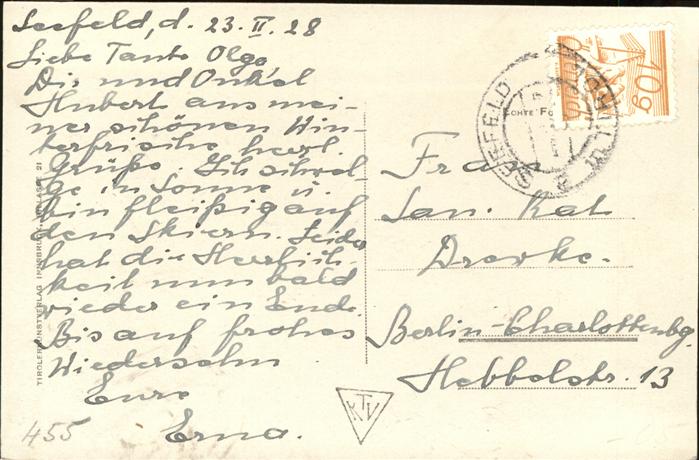 Seefeld, d. 23. II. 28
Liebe Tante Olga,
Dir und Onkel
Hubert aus mei-
ner schönen Win-
terfrische herzl.
Grüße. Ich schwel-
ge in Sonne u.
bin fleißig auf
den Skiern. Leider
hat die Herrlich-
keit nun bald
wieder ein Ende.
Bis auf frohes
Wiedersehn
Eure
Erna.
455
TIROLER KUNSTVERLAG INNSBRUCK
KTV
10g
SEEFELD
ECHTE
Frau
San. Rat
Berlin-Charlottenbg.
Hebbelstr. 13